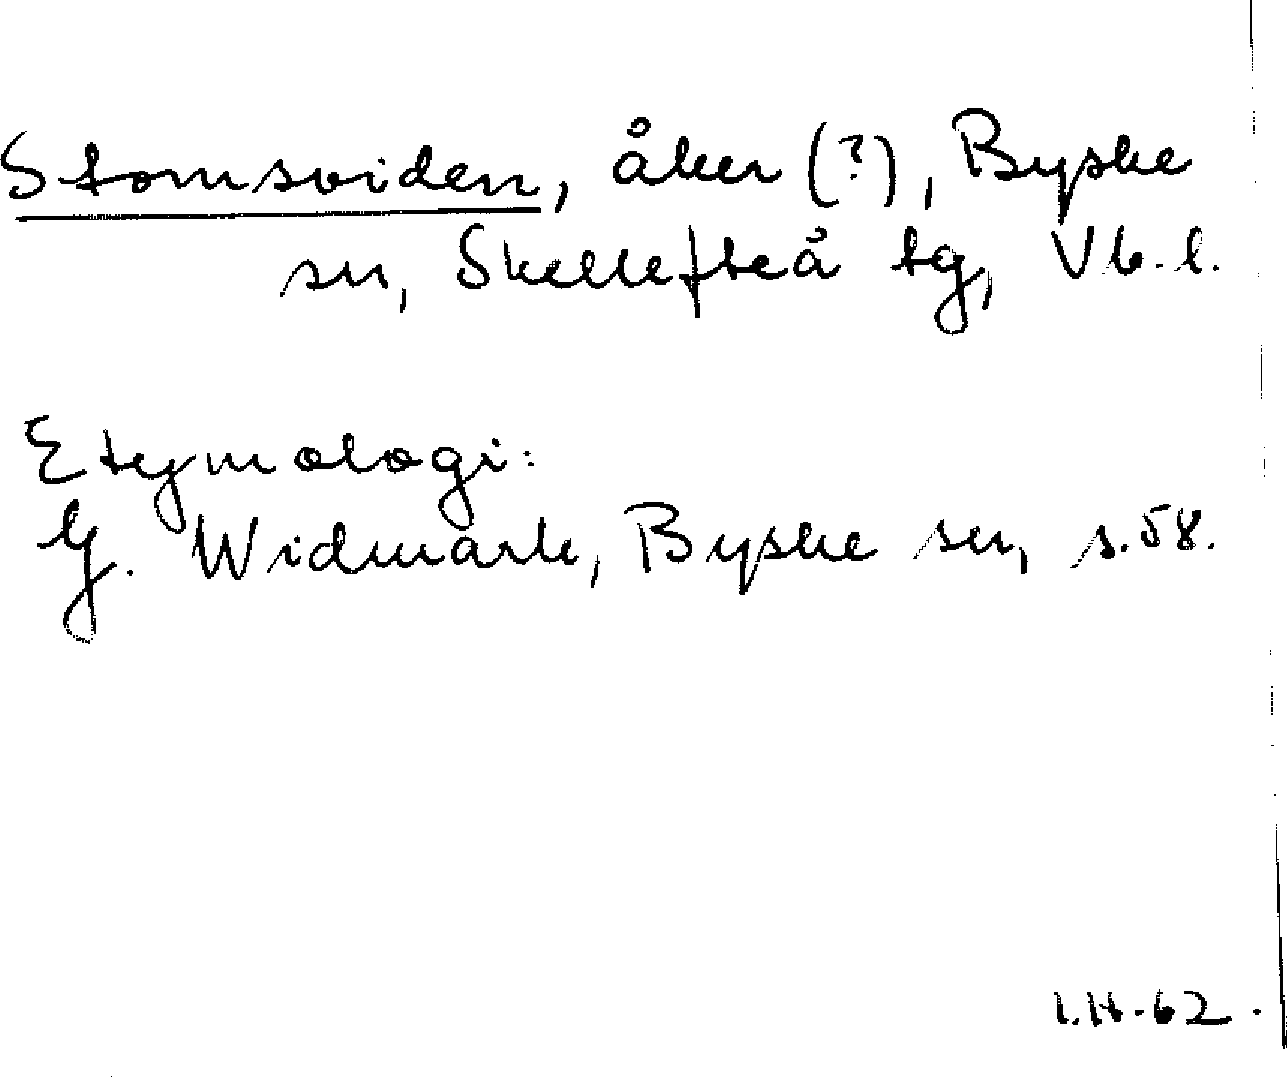 Stomsviden, åker (?), Byske
sn, Skellefteå tg, Vb. l.
Etymologi:
G. Widmark, Byske sn, s. 58.
I.H-62.